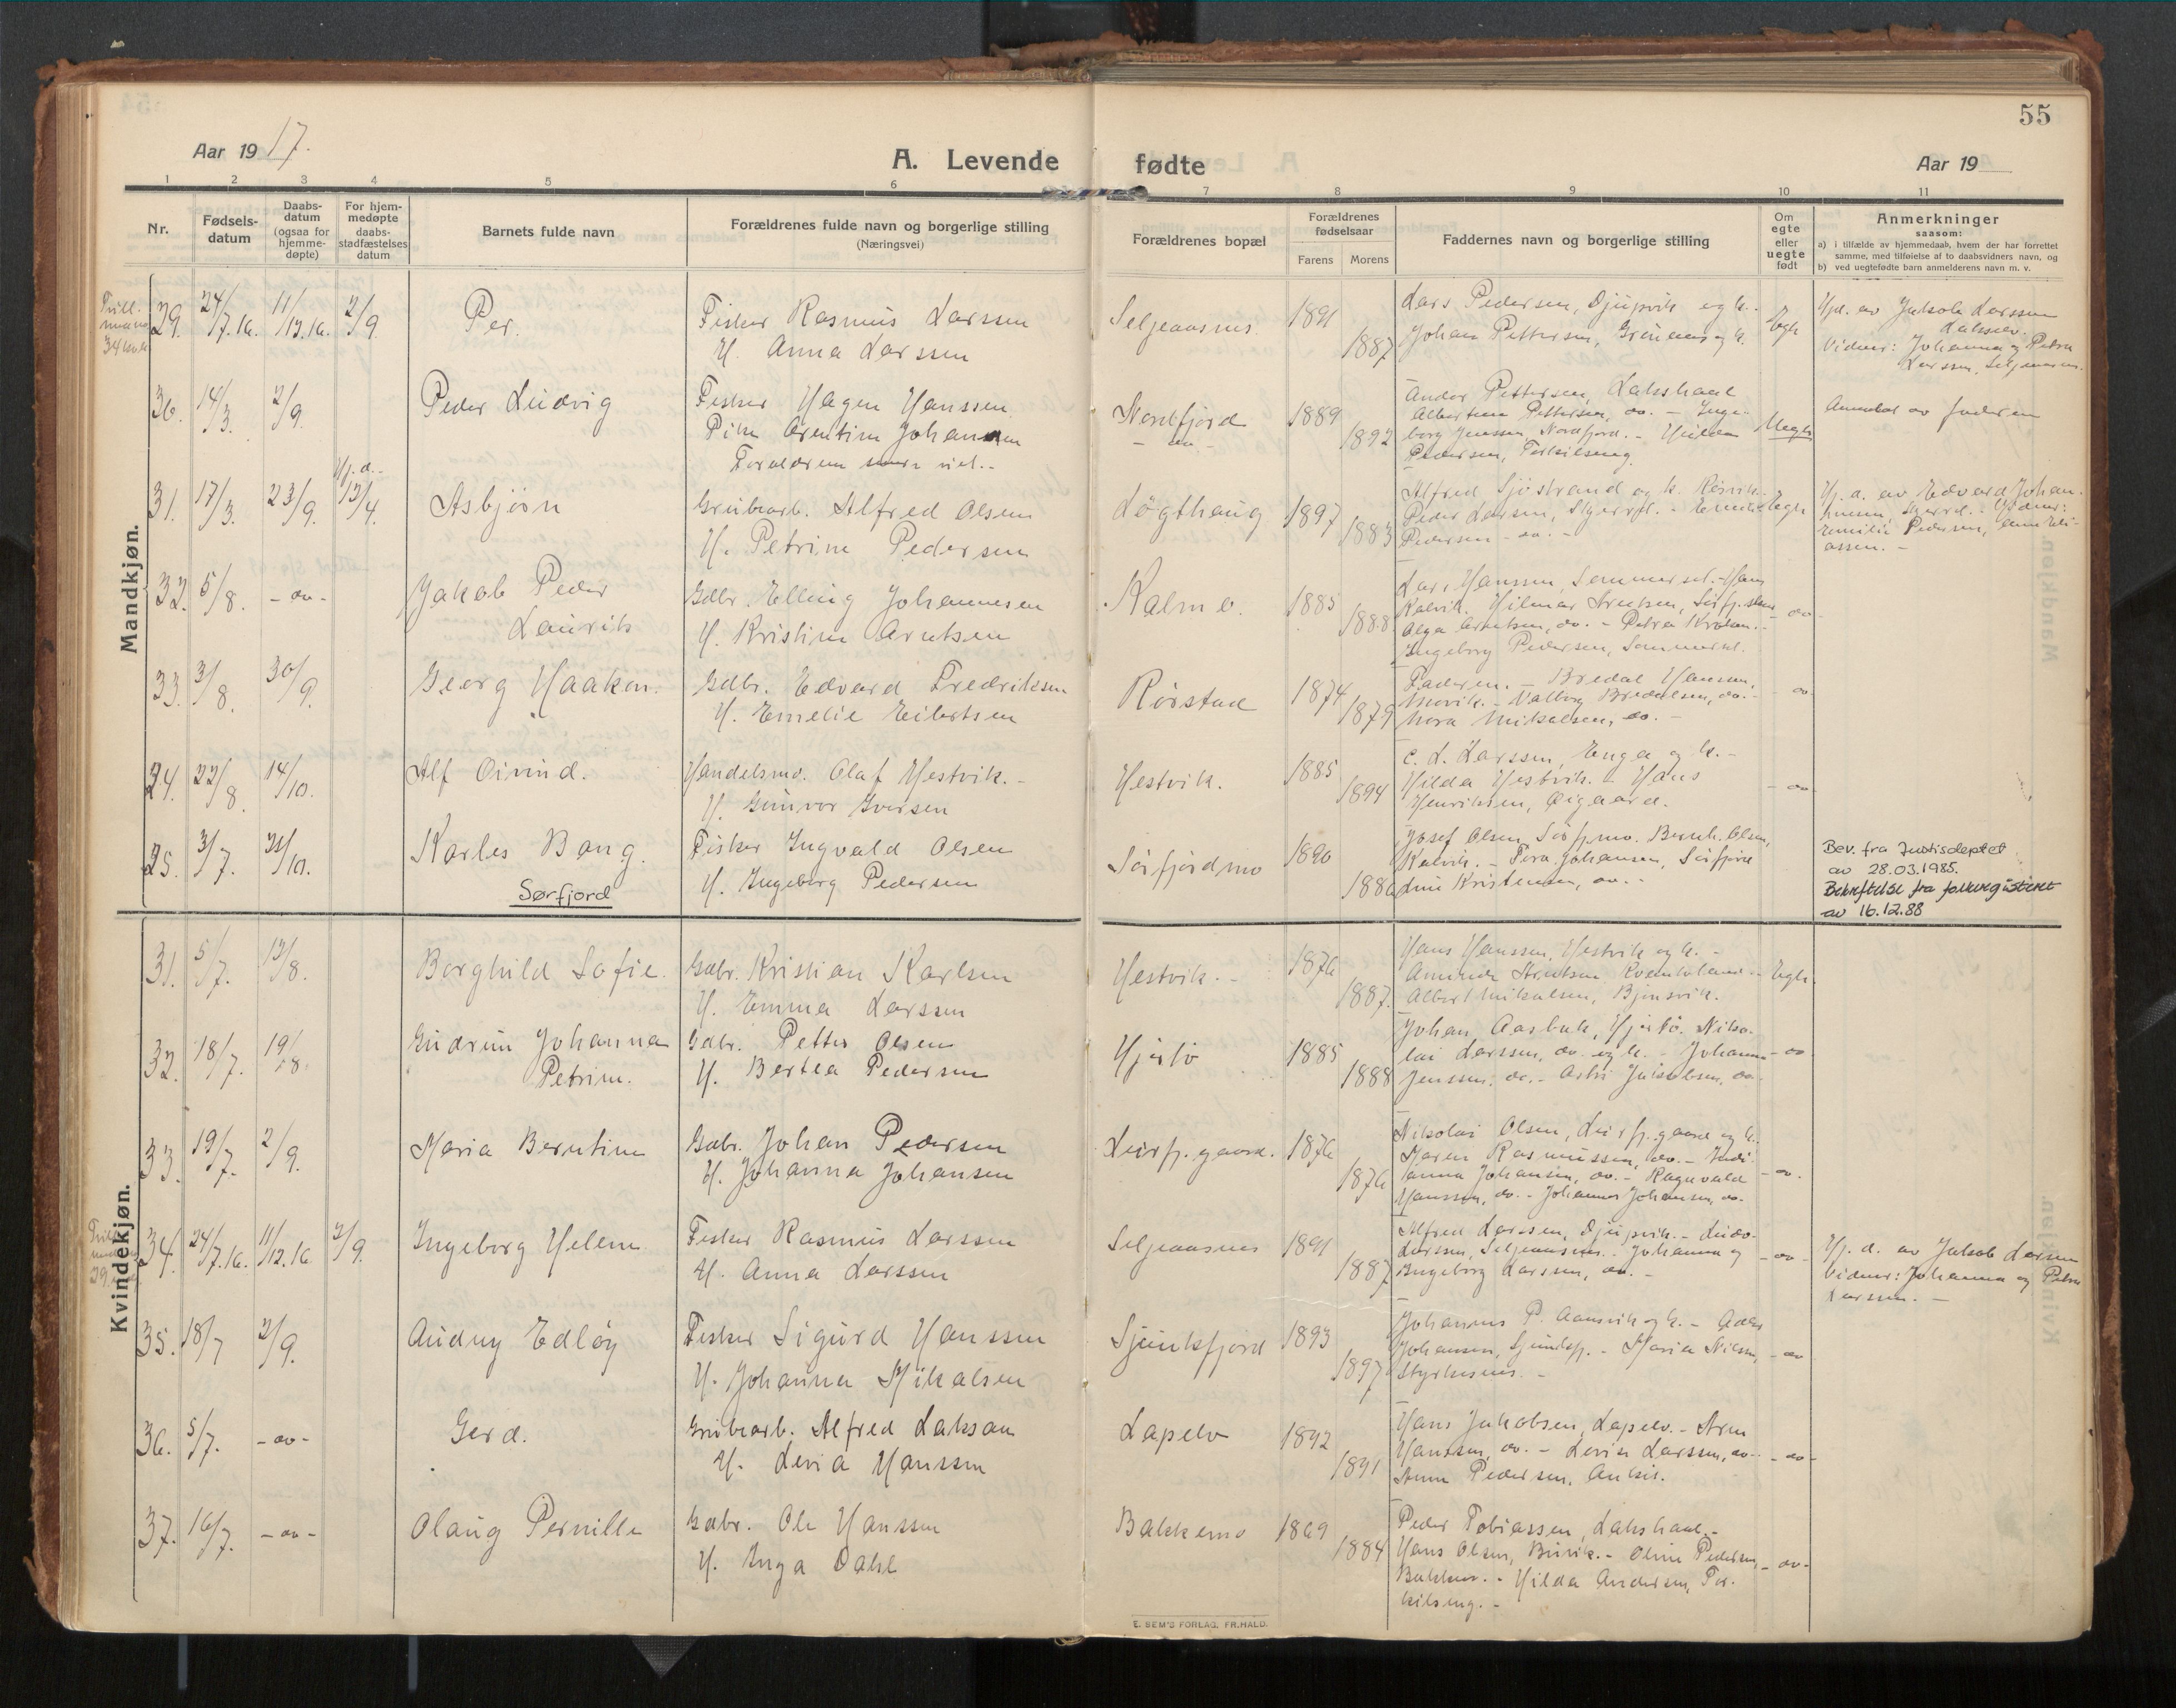 55
Aar 1917.
A. Levende fødte
Aar 19
1 2 3 4 5 6 7 8 9 10 11
Nr.
Fødsels-
datum
Daabs-
datum
(ogsaa for
hjemme-
døpte)
For hjem-
medøpte
daabs-
stadfæstelses
datum
Barnets fulde navn
Forældrenes fulde navn og borgerlige stilling
(Næringsvei)
Forældrenes bopæl
Forældrenes
fødselsaar
Farens Morens
Faddernes navn og borgerlige stilling
Om
egte
eller
uegte
født
Anmerkninger
saasom:
a) i tilfælde av hjemmedaab, hvem der har forrettet
samme, med tilføielse af to daabsvidners navn, og
b) ved uegtefødte barn anmelderens navn m. v.
Mandkjøn.
29. 24/7.16. 11/12.16. 2/9 Per.
Fisker Rasmus Larssen
H. Anna Larssen
Seljeaasnes. 1891
1887
Lars Pedersen, Djupvik og h.
Johan Pettersen, og h.
Egte
Hjd. av Jakob Larssen
Vidner: Johanna og Petra
Larssen, Seljeaasnes.
30. 14/3. 2/9. Peder Ludvig
Fisker Hagen Hanssen
Pike Arntine Johansen
Forældrene
Nordfjord 1889
- do - 1892
Andor Pettersen, Lakshaal
Albertine Pettersen, do. - Inge-
borg Jenssen, Nordfjord. - Hilda
Pedersen,
Uegte
Anmeldt av faderen
31. 17/3. 23/9. Hj.d. 13/4. Asbjørn
Grubearb. Alfred Olsen
H. Petrine Pedersen
Løgthaug 1897
1883
Alfred Sjøstrand og h. Rørvik.
Peder Larsen,
Pedersen - do. -
Egte
Hj. d. av Edvard Johan-
nesen, Vidner:
Emilie Pedersen,
assen. -
32. 5/8. - do - Jakob Peder
Laurits
Gdbr. Elling Johannesen
H. Kristine Arntsen
Kalmo. 1885
1888
Lars Hanssen, Sommersel. - Hans
Kalvik. Hilmar Arntsen,
Olga Arntsen, do. - Petra
Ingeborg Pedersen, Sommersel.
- do -
33. 3/8. 30/9. Georg Haakon.
Gdbr. Edvard Fredriksen
H. Emelie Eibertsen
Rørstad 1874
1879
Faderen. - Bredal Hansen,
Movik. - Valborg Bredalsen, do. -
Nora Mikalsen, do. -
- do
34. 22/8. 14/10. Alf Oivind.
Handelsmd. Olaf Hestvik. -
H. Gunvor Iversen
Hestvik. 1885
1894
C. L. Larssen, Enga og h. -
Hilda Hestvik. - Hans
Henriksen, Øigaard.
- do -
35. 3/7. 21/10. Karles Bang.
Sørfjord
Fisker Ingvald Olsen
H. Ingeborg Pedersen
Sørfjordmo 1890
1886
Josef Olsen, Sørfj.mo. Bernh. Olsen,
Kalvik. - Tora Johansen, Sørfjord
Lina Kristensen, do. -
Bev. fra Justisdeptet
av 28.03.1985.
Bekreftelse fra folkeregisteret
av 16.12.88
Kvindekjøn.
31. 5/7. 19/8. Borghild Sofie.
Gdbr. Kristian Karlsen
H. Emma Larssen
Hestvik. - 1876
1887.
Hans Hanssen, Hestvik og h. -
Amanda Arntsen
Albert Mikalsen, Bjønsvik.
Egte.
32. 18/7. 19/8. Gudrun Johanna
Petrine.
Gdbr. Petter Olsen
H. Bertea Pedersen
Hjertø 1885
1888
Johan Aasbak, Hjertø. Niko-
lai Larssen, do. og h. - Johanna
Jenssen, do. - Jakobsen, do
- do
33. 19/7. 2/9. Maria Berntine
Gdbr. Johan Pedersen
H. Johanna Johansen
Leirfj. gaard. 1876
1876
Nikolai Olsen, Leirfj. gaard og h.
Maren Rasmussen, do. - Indi-
anna Johansen, do. - Ragnvald
Hanssen, do. - Johannes Johansen, do.
- do.
34. 24/7.16. 11/12.16 2/9. Ingeborg Helene
Fisker Rasmus Larssen
H. Anna Larssen
Seljeaasnes 1891
1887
Alfred Larssen, Djupvik. - Ludv.
Larssen, Seljeaasnes. - Johanna og
Ingeborg Larssen, do. -
- do -
Hj. d. av Jakob Larssen
Vidner: Johanna og Petra
Larssen. -
35. 18/7 2/9. Audny Edløy
Fisker Sigurd Hanssen
H. Johanna Mikalsen
Sjunkfjord 1893
1897
Johannes P. Aansvik og h. -
Johansen, Sjunkfj. - Maria Nilsen,
Styrkesnes. -
- do
36. 5/7. - do - Gerd.
Grubearb. Alfred Laksaa
H. Levia Hanssen
Lapelv 1892
1891
Hans Jakobsen, Lapelv. -
Hanssen, do. - Lovise Larssen, do -
Anna Pedersen,
- do -
37. 16/7. - do - Olaug Pernille
Gdbr. Ole Hanssen
H. Inga Dahl
Bakkemo 1869
1884
Peder Tobiassen, Lakshaal. -
Hans Olsen, - Oline Pedersen,
Bakkemo. - Hilda Andersen, Tor-
kilseng. -
- do -
E. SEM'S FORLAG, FR.HALD.